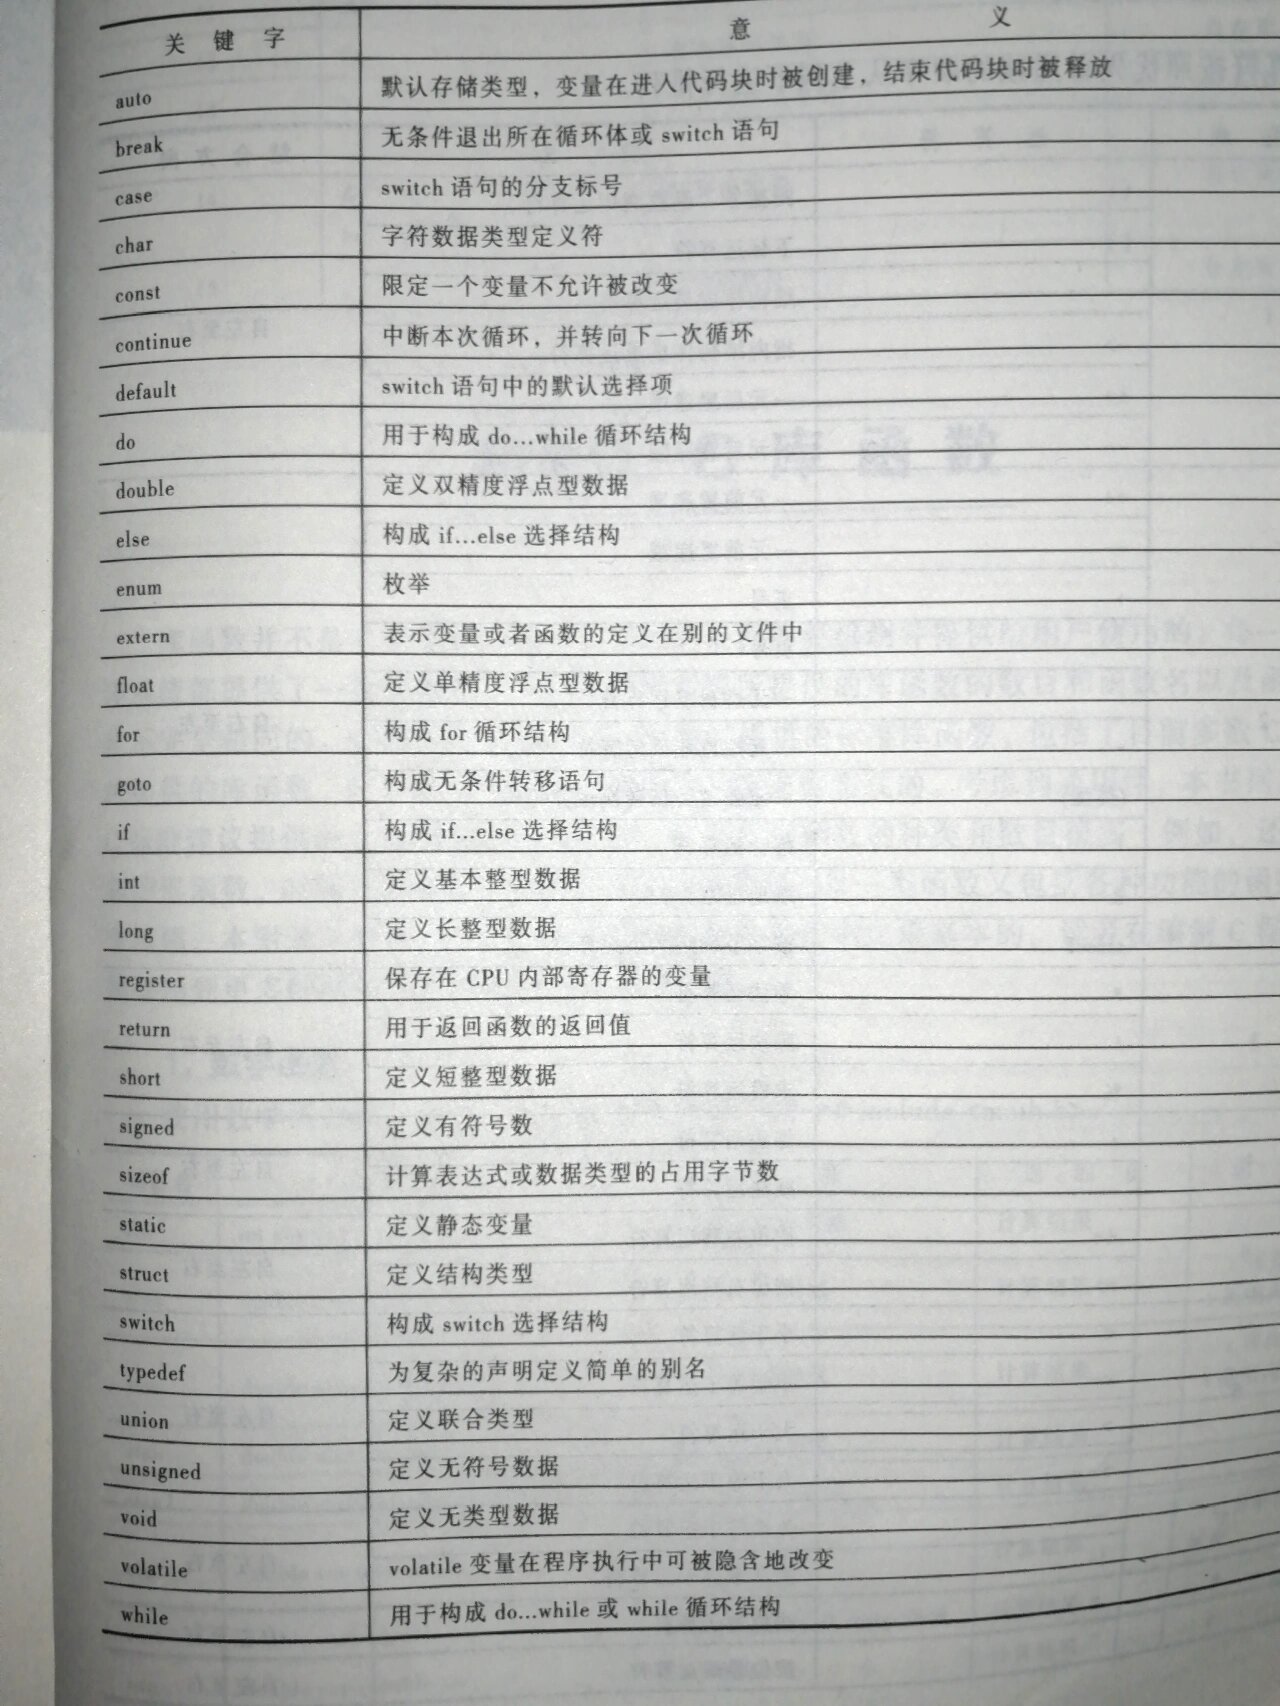 关 键 字 意 义
auto 默认存储类型，变量在进入代码块时被创建，结束代码块时被释放
break 无条件退出所在循环体或 switch 语句
case switch 语句的分支标号
char 字符数据类型定义符
const 限定一个变量不允许被改变
continue 中断本次循环，并转向下一次循环
default switch 语句中的默认选择项
do 用于构成 do...while 循环结构
double 定义双精度浮点型数据
else 构成 if...else 选择结构
enum 枚举
extern 表示变量或者函数的定义在别的文件中
float 定义单精度浮点型数据
for 构成 for 循环结构
goto 构成无条件转移语句
if 构成 if...else 选择结构
int 定义基本整型数据
long 定义长整型数据
register 保存在 CPU 内部寄存器的变量
return 用于返回函数的返回值
short 定义短整型数据
signed 定义有符号数
sizeof 计算表达式或数据类型的占用字节数
static 定义静态变量
struct 定义结构类型
switch 构成 switch 选择结构
typedef 为复杂的声明定义简单的别名
union 定义联合类型
unsigned 定义无符号数据
void 定义无类型数据
volatile volatile 变量在程序执行中可被隐含地改变
while 用于构成 do...while 或 while 循环结构